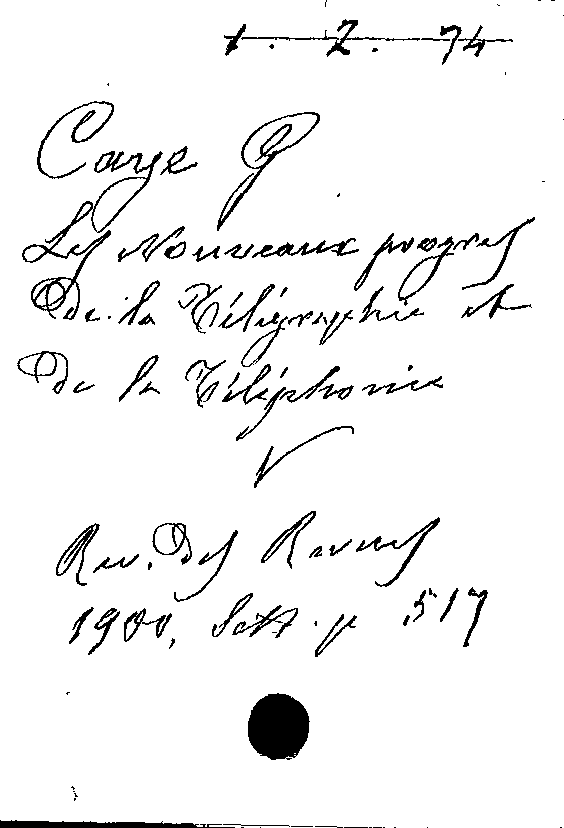 1. Z. 74
Caye G
Les Nouveaux progres
De la Télégraphie et
De la Téléphonie
V
Rev. Des Revues
1900, Sett. p 517